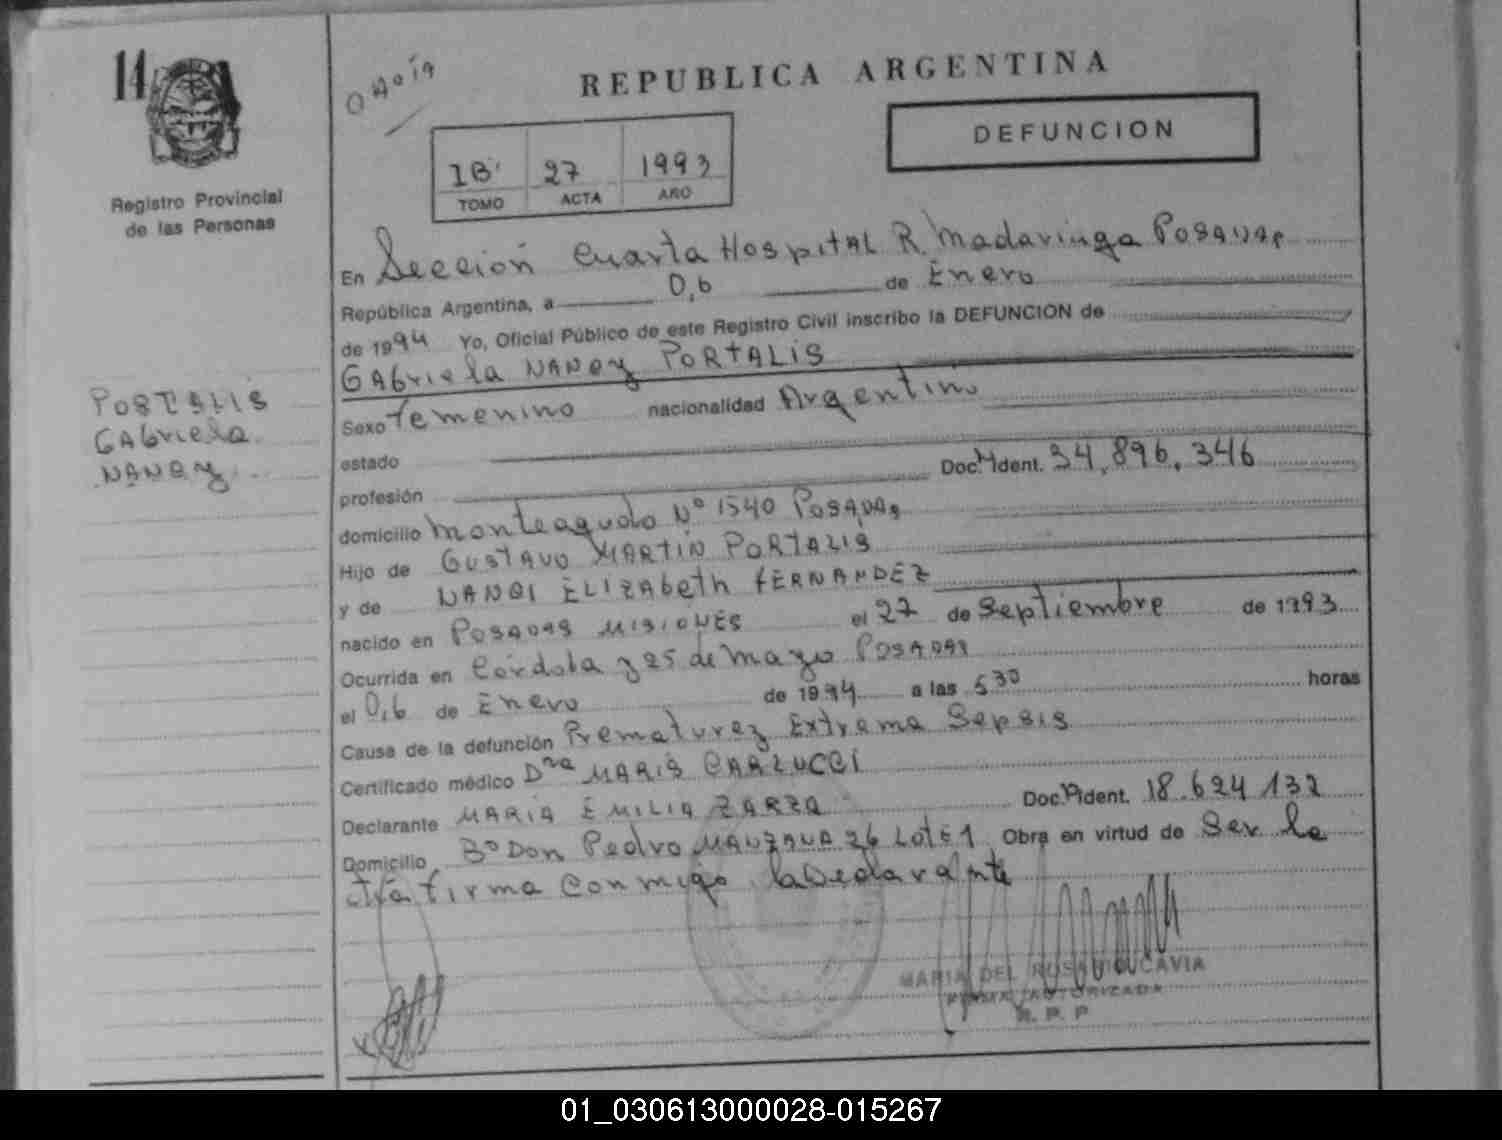 14
Registro Provincial
de las Personas
REPUBLICA ARGENTINA
DEFUNCION
1B' 27 1993
TOMO ACTA AÑO
En Sección Cuarta Hospital R. Madariaga Posadas
República Argentina, a 0,6 de Enero
de 1994 Yo, Oficial Público de este Registro Civil inscribo la DEFUNCION de
GAbriela NANCY PORTALIS
PORTALIS
GAbriela
NANCY
Sexo Femenino nacionalidad Argentino
estado
profesión Doc. Ident. 34,896,346
domicilio Monteagudo Nº 1540 POSADAS
Hijo de GUSTAVO MARTIN PORTALIS
y de NANCI ELIZAbeth FERNANDEZ
nacido en POSADAS MISIONES el 27 de Septiembre de 1993
Ocurrida en Córdoba y 25 de mayo POSADAS
el 0,6 de Enero de 1994 a las 5 30 horas
Causa de la defunción Prematurez Extrema Sepsis
Certificado médico Dra MARIS CARLUCCI
Declarante MARIA EMILIA ZARZA Doc. Ident. 18.624.132
Domicilio Bº Don Pedro MANZANA 26 Lote 1 Obra en virtud de Ser la
tía firma Conmigo la Declarante
MARIA DEL ROSARIO UCAVIA
FIRMA AUTORIZADA
R. P. P
01_030613000028-015267